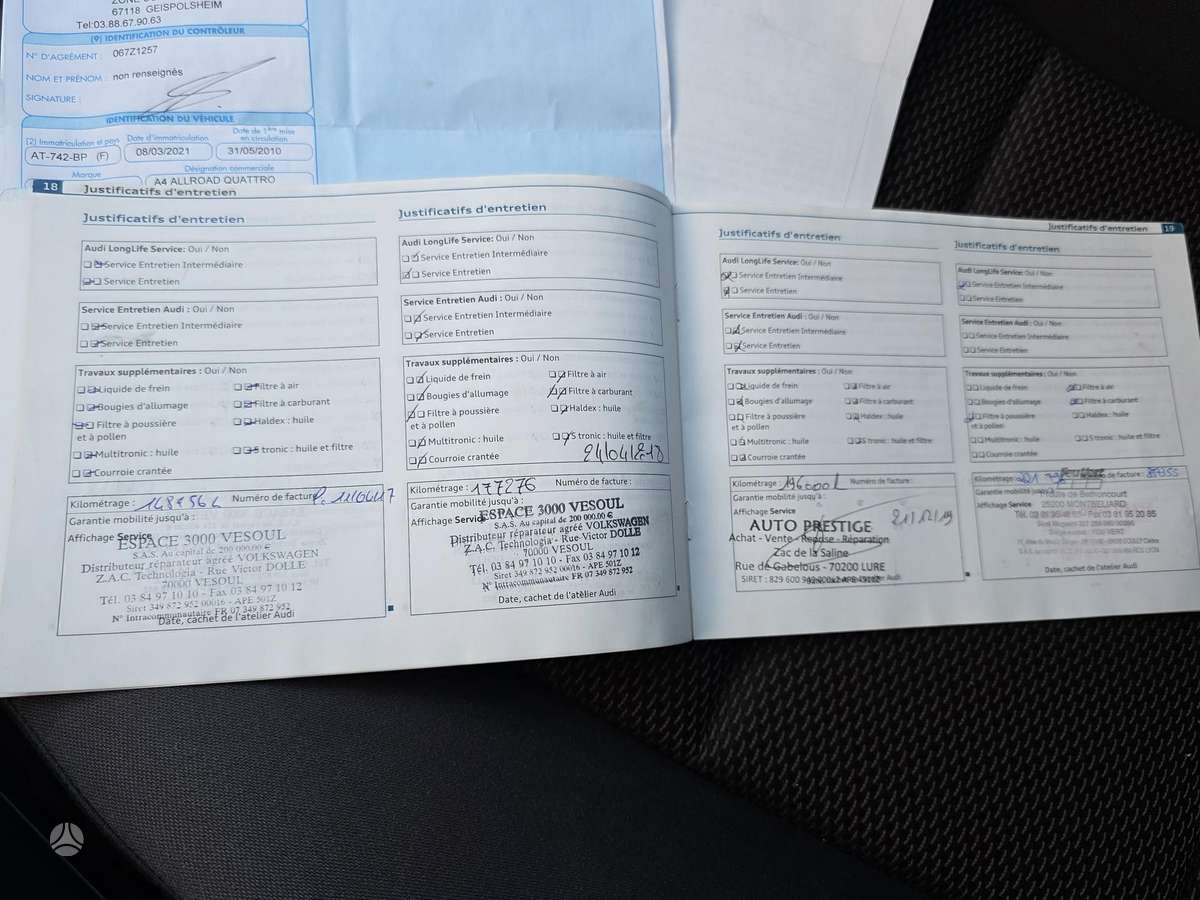 67118 GEISPOLSHEIM
Tel:03.88.67.90.63
(9) IDENTIFICATION DU CONTRÔLEUR
N° D'AGRÉMENT : 067Z1257
NOM ET PRÉNOM : non renseignés
SIGNATURE :
IDENTIFICATION DU VÉHICULE
(2) Immatriculation et pays
Date d'immatriculation
Date de 1ère mise
en circulation
AT-742-BP (F)
08/03/2021
31/05/2010
Marque
Désignation commerciale
A4 ALLROAD QUATTRO
18 Justificatifs d'entretien
Justificatifs d'entretien
Audi LongLife Service: Oui / Non
Service Entretien Intermédiaire
Service Entretien
Service Entretien Audi : Oui / Non
Service Entretien Intermédiaire
Service Entretien
Travaux supplémentaires : Oui / Non
Liquide de frein
Filtre à air
Bougies d'allumage
Filtre à carburant
Filtre à poussière
et à pollen
Haldex : huile
Multitronic : huile
S tronic : huile et filtre
Courroie crantée
Kilométrage :
Numéro de facture
Garantie mobilité jusqu'à :
Affichage Service
ESPACE 3000 VESOUL
S.A.S. Au capital de 200 000.00 €
Distributeur réparateur agréé VOLKSWAGEN
Z.A.C. Technologia - Rue Victor DOLLE
70000 VESOUL
Tél. 03 84 97 10 10 - Fax 03 84 97 10 12
Siret 349 872 952 00016 - APE 501Z
N° Intracommunautaire FR 07 349 872 952
Date, cachet de l'atelier Audi
Justificatifs d'entretien
Audi LongLife Service: Oui / Non
Service Entretien Intermédiaire
Service Entretien
Service Entretien Audi : Oui / Non
Service Entretien Intermédiaire
Service Entretien
Travaux supplémentaires : Oui / Non
Liquide de frein
Filtre à air
Bougies d'allumage
Filtre à carburant
Filtre à poussière
et à pollen
Haldex : huile
Multitronic : huile
S tronic : huile et filtre
Courroie crantée
Kilométrage : 177276
Numéro de facture :
Garantie mobilité jusqu'à :
Affichage Service
ESPACE 3000 VESOUL
S.A.S. Au capital de 200 000.00 €
Distributeur réparateur agréé VOLKSWAGEN
Z.A.C. Technologia - Rue Victor DOLLE
70000 VESOUL
Tél. 03 84 97 10 10 - Fax 03 84 97 10 12
Siret 349 872 952 00016 - APE 501Z
N° Intracommunautaire FR 07 349 872 952
Date, cachet de l'atelier Audi
Justificatifs d'entretien 19
Justificatifs d'entretien
Audi LongLife Service: Oui / Non
Service Entretien Intermédiaire
Service Entretien
Service Entretien Audi : Oui / Non
Service Entretien Intermédiaire
Service Entretien
Travaux supplémentaires : Oui / Non
Liquide de frein
Filtre à air
Bougies d'allumage
Filtre à carburant
Filtre à poussière
et à pollen
Haldex : huile
Multitronic : huile
S tronic : huile et filtre
Courroie crantée
Kilométrage : 196000
Numéro de facture :
Garantie mobilité jusqu'à :
Affichage Service
21/12/19
AUTO PRESTIGE
Achat - Vente - Reprise - Réparation
Zac de la Saline
Rue de Gabelous - 70200 LURE
SIRET : 829 600
Justificatifs d'entretien
Audi LongLife Service: Oui / Non
Service Entretien Intermédiaire
Service Entretien
Service Entretien Audi : Oui / Non
Service Entretien Intermédiaire
Service Entretien
Travaux supplémentaires : Oui / Non
Liquide de frein
Filtre à air
Bougies d'allumage
Filtre à carburant
Filtre à poussière
et à pollen
Haldex : huile
Multitronic : huile
S tronic : huile et filtre
Courroie crantée
Kilométrage :
de facture :
Garantie mobilité
Affichage Service
25200 MONTBELIARD
Date, cachet de l'atelier Audi